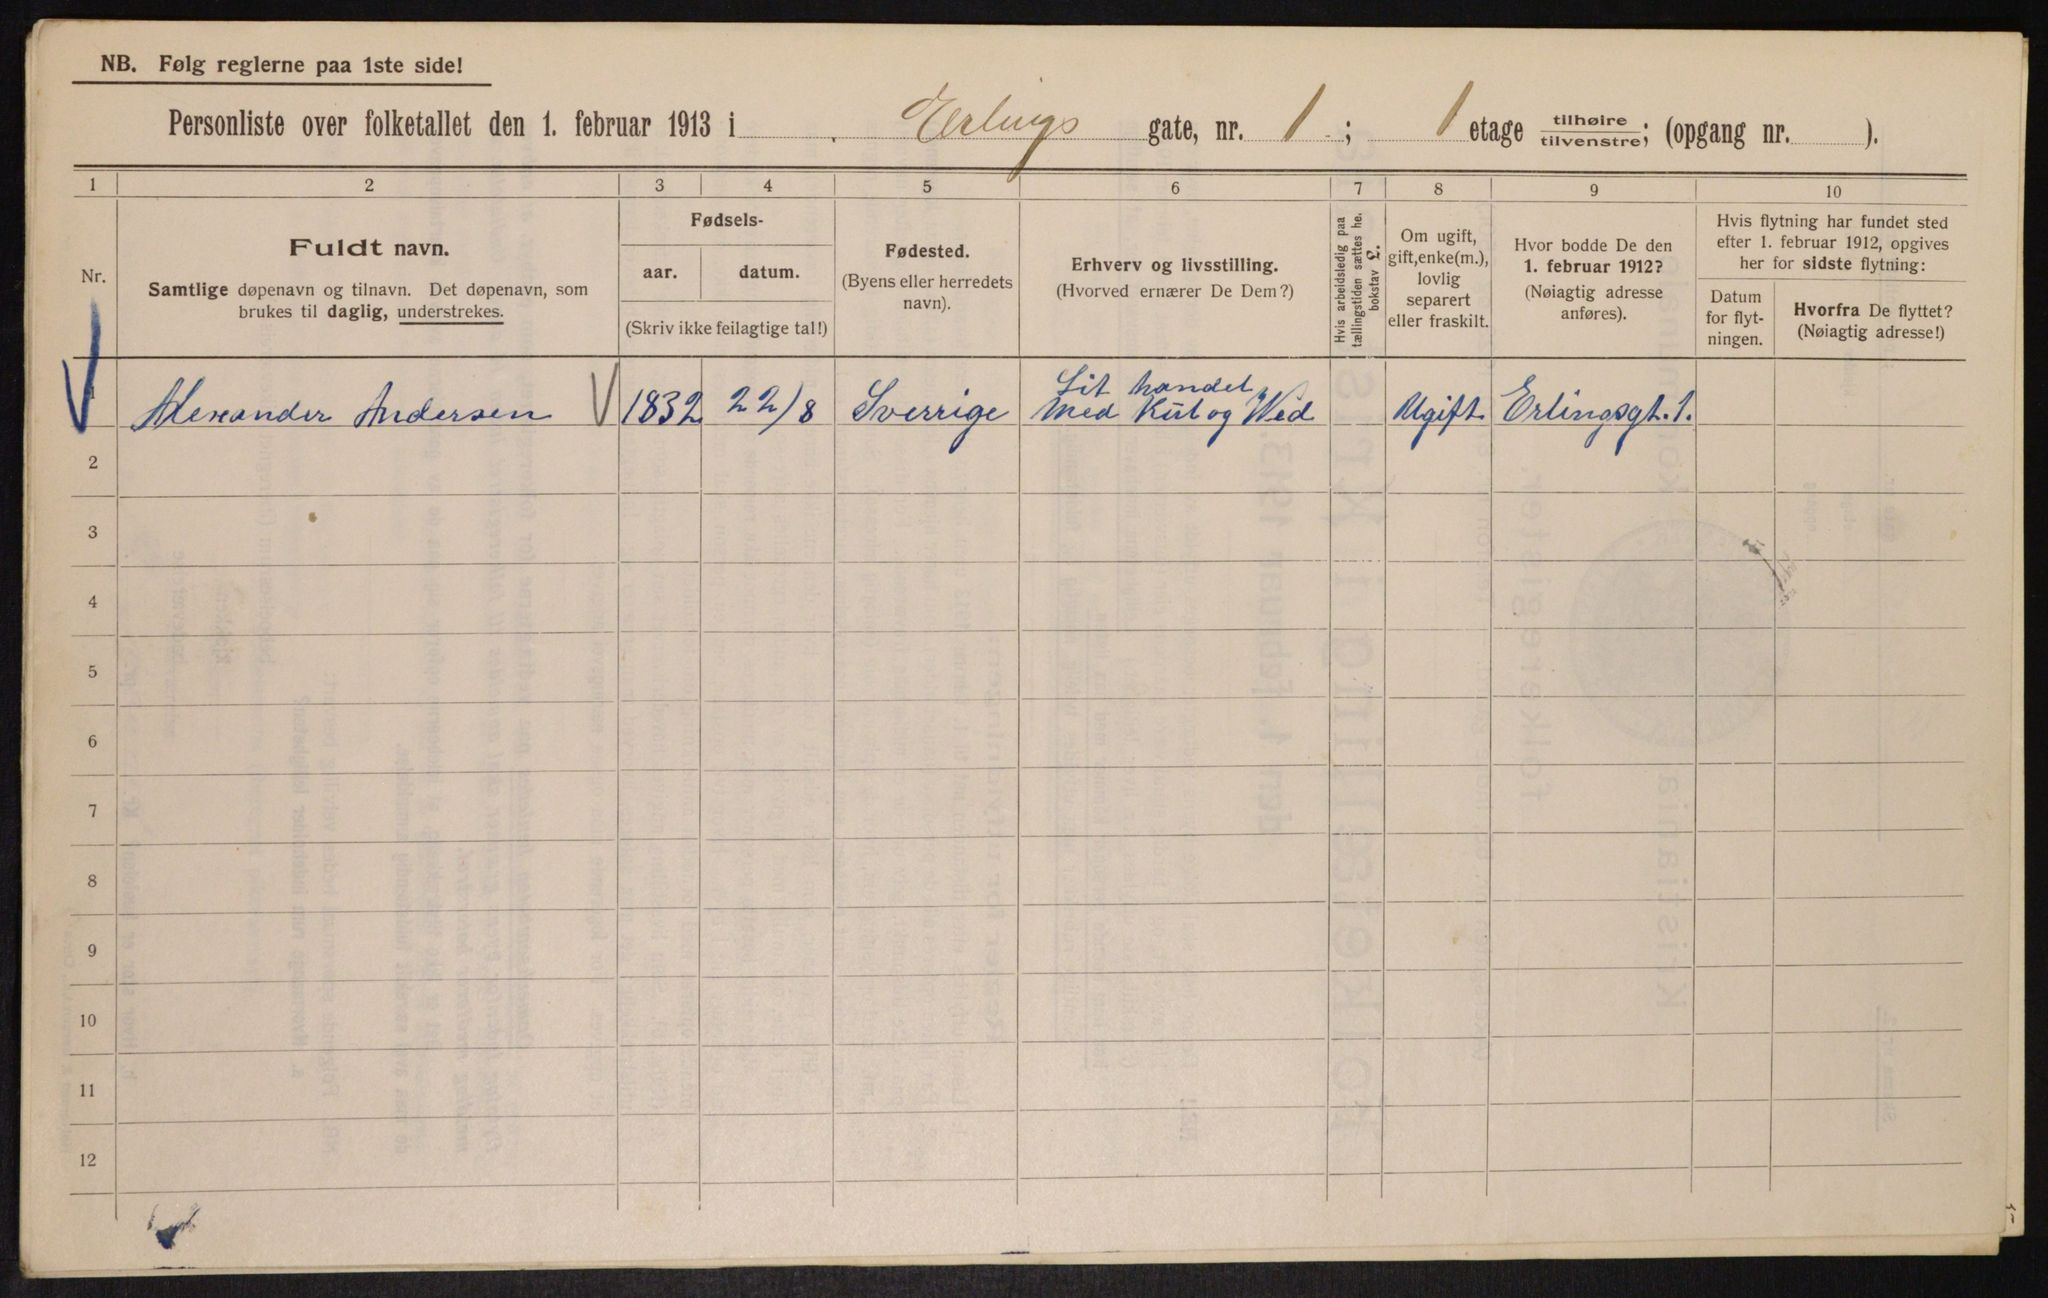 NB. Følg reglerne paa 1ste side!
Personliste over folketallet den 1. februar 1913 i Erlings gate, nr. 1; 1 etage tilhøire tilvenstre; (opgang nr. ).
1 2 3 4 5 6 7 8 9 10
Nr.
Fuldt navn.
Samtlige døpenavn og tilnavn. Det døpenavn, som
brukes til daglig, understrekes.
Fødsels-
aar. datum.
(Skriv ikke feilagtige tal!)
Fødested.
(Byens eller herredets
navn).
Erhverv og livsstilling.
(Hvorved ernærer De Dem?)
Hvis arbeidsledig paa
tællingstiden sættes he.
bokstav L.
Om ugift,
gift, enke(m.),
lovlig
separert
eller fraskilt.
Hvor bodde De den
1. februar 1912?
(Nøiagtig adresse
anføres).
Hvis flytning har fundet sted
efter 1. februar 1912, opgives
her for sidste flytning:
Datum
for flyt-
ningen.
Hvorfra De flyttet?
(Nøiagtig adresse!)
1 Alexander Andersen 1832 22/8 Sverrige Lit handel
med Kul og Wed Ugift Erlingsgt. 1.
2
3
4
5
6
7
8
9
10
11
12